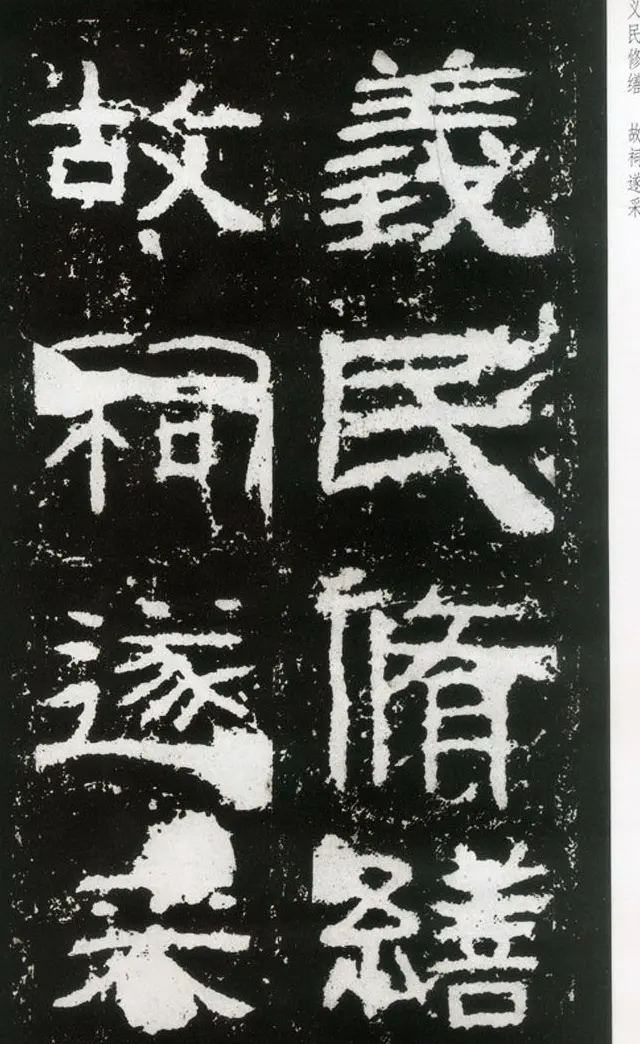 義民脩繕
故祠遂采
义民修缮 故祠遂采